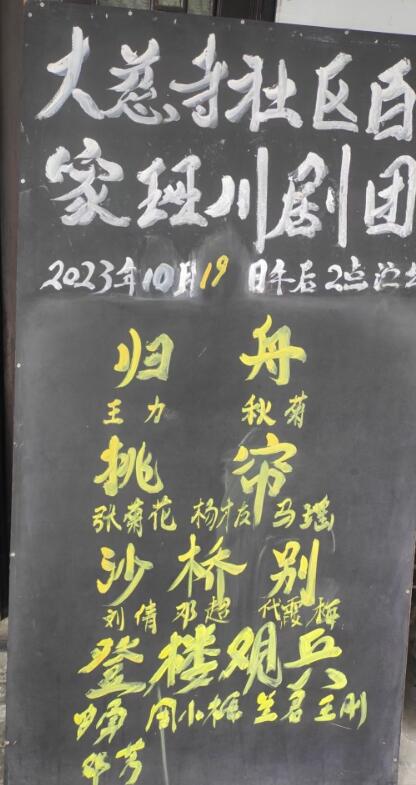 大慈寺社区百
家班川剧团
2023年10月19日午后2点演出
归舟
王力 秋菊
挑帘
张菊花 杨友 马瑶
沙桥别
刘倩 邓超 代霞梅
登楼观兵
周小 兰君 王刚
邓芳